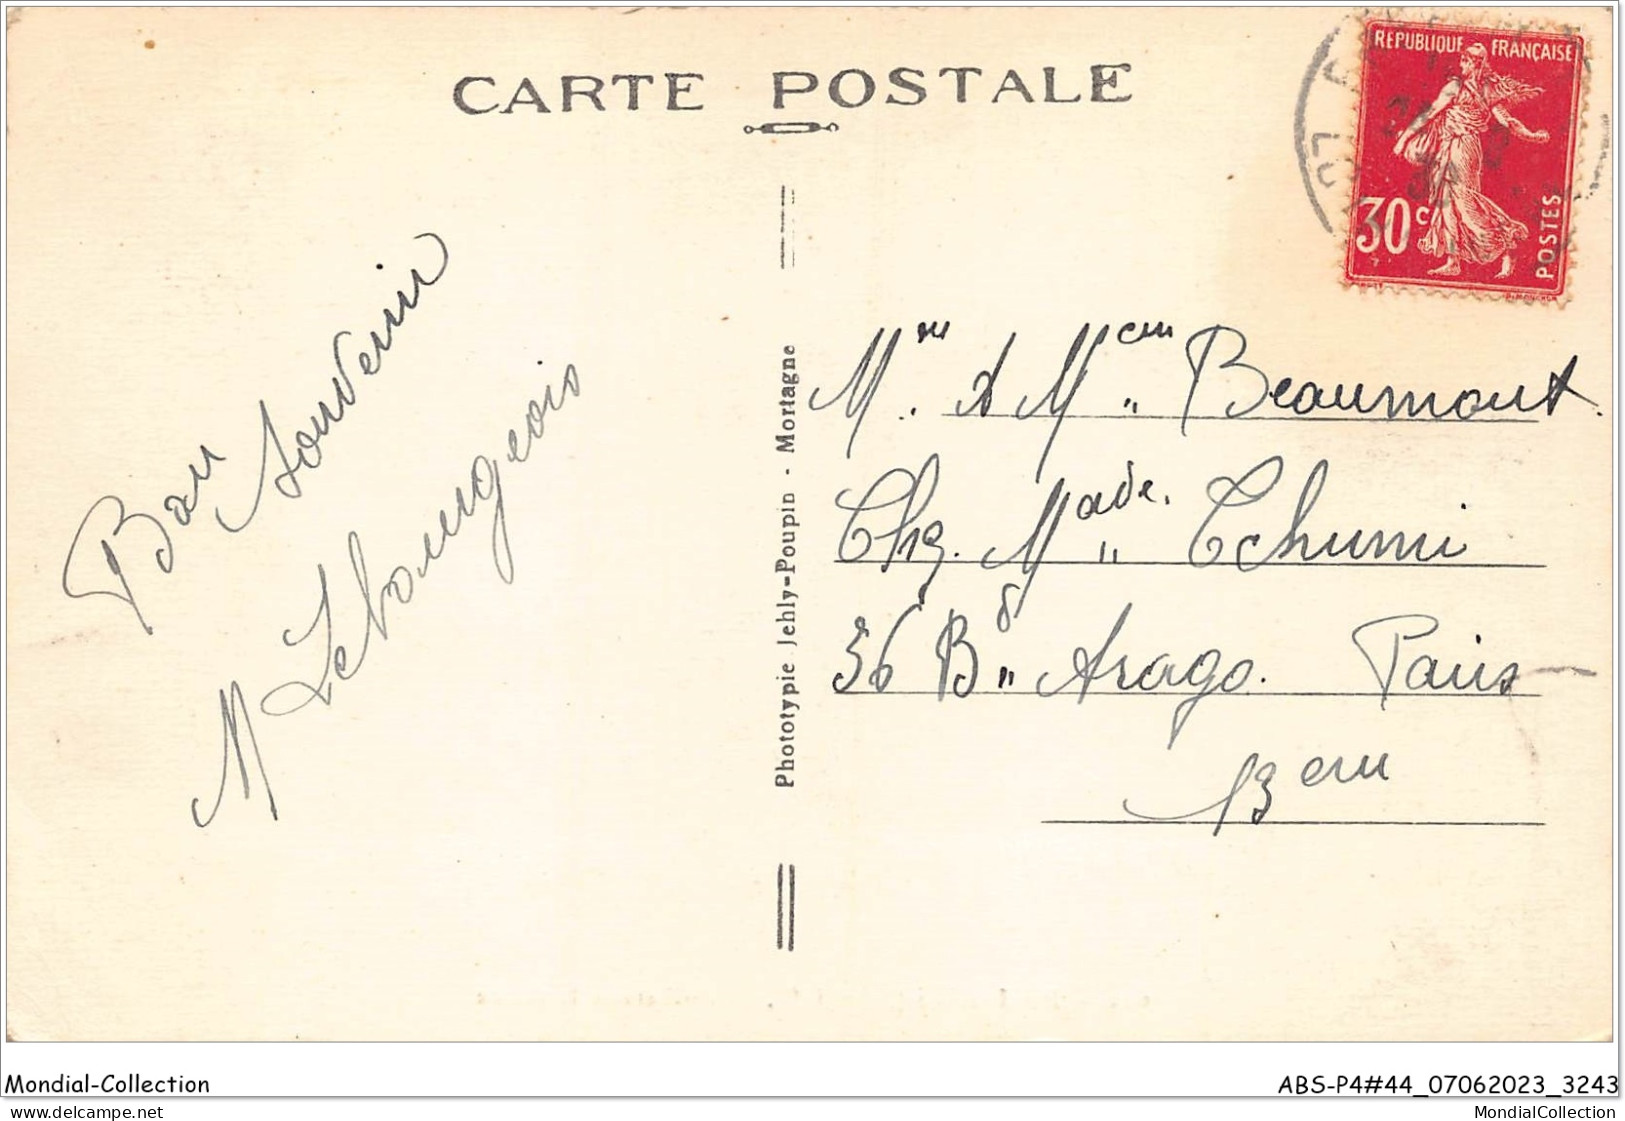 CARTE POSTALE
REPUBLIQUE FRANÇAISE
30c
POSTES
Bon Souvenir
M Lebourgeois
Phototypie Jehly-Poupin - Mortagne
Mr & Mme Beaumont.
Chz. Made. Tchumi
36 Bd Arago. Paris
13em
Mondial-Collection
ABS-P4#44_07062023_3243
www.delcampe.net
MondialCollection